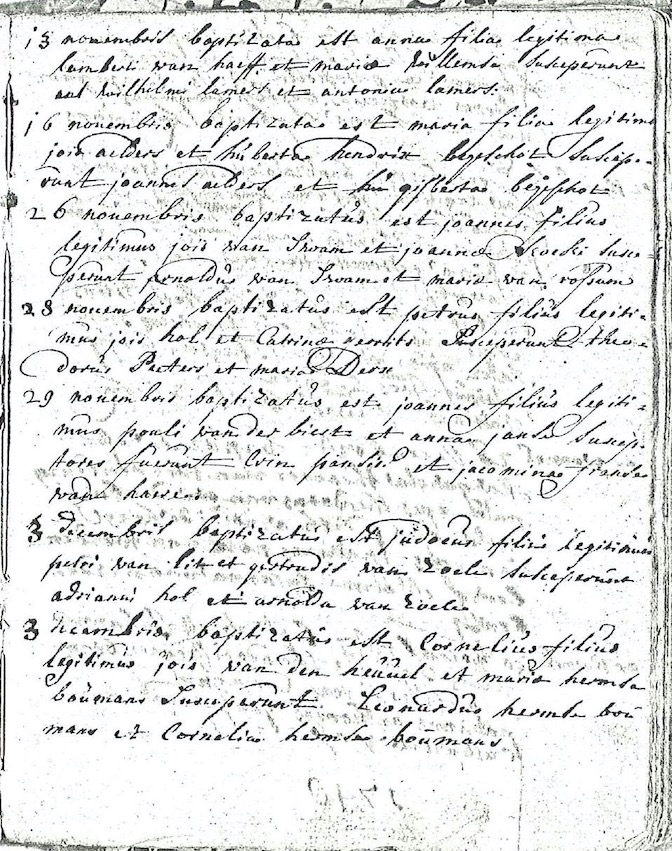 13 novembris baptizata est anna filia legitima
lamberti van haeff et maria willems susceperunt
wilhelmi lamers et antonia lamers:
16 novembris baptizata est maria filia legitima
jois aelders et huberta hendrix beijschot suscepe-
runt joannes aelders et gisberta beijschot
26 novembris baptizatus est joannes filius
legitimus jois van Iwam et joanna susce-
perunt arnoldus van Iwam et maria van rossum
28 novembris baptizatus est petrus filius legiti-
mus jois hol et Catrina gerrits susceperunt theo-
dorus Peeters et maria
29 novembris baptizatus est joannes filius legiti-
mus pauli van der biest et anna janse suscep-
tores fuerunt et jacomina janse
van haere.
3 decembris baptizatus est judocus filius legitimus
petri van lit et gertrudis van zoele susceperunt
adriani hol et arnolda van zoele
3 decembris baptizatus est Cornelius filius
legitimus jois van den heuvel et maria hermse
boumans susceperunt Leonardus hermse bou
mans et Cornelia hermse boumans